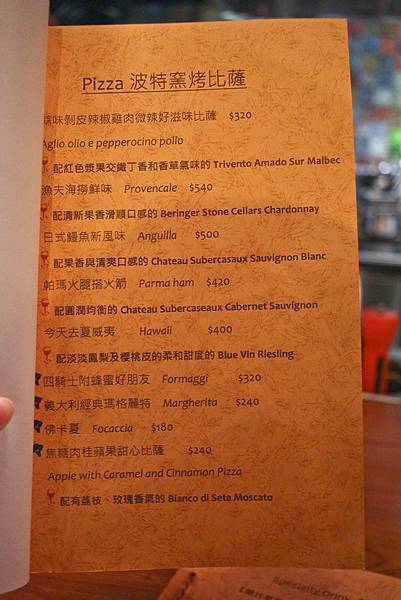 Pizza 波特窯烤比薩
蒜味剝皮辣椒雞肉微辣好滋味比薩 $320
Aglio olio e pepperocino pollo
配紅色漿果交織丁香和香草氣味的 Trivento Amado Sur Malbec
漁夫海撈鮮味 Provencale $540
配清新果香滑順口感的 Beringer Stone Cellars Chardonnay
日式鰻魚新風味 Anguilla $500
配果香與清爽口感的 Chateau Subercasaux Sauvignon Blanc
帕瑪火腿搭火箭 Parma ham $420
配圓潤均衡的 Chateau Subercaseaux Cabernet Sauvignon
今天去夏威夷 Hawaii $400
配淡淡鳳梨及櫻桃皮的柔和甜度的 Blue Vin Riesling
四騎士附蜂蜜好朋友 Formaggi $320
義大利經典瑪格麗特 Margherita $240
佛卡夏 Focaccia $180
焦糖肉桂蘋果甜心比薩 $240
Apple with Caramel and Cinnamon Pizza
配有荔枝、玫瑰香氣的 Bianco di Seta Moscato
Specialty Drink